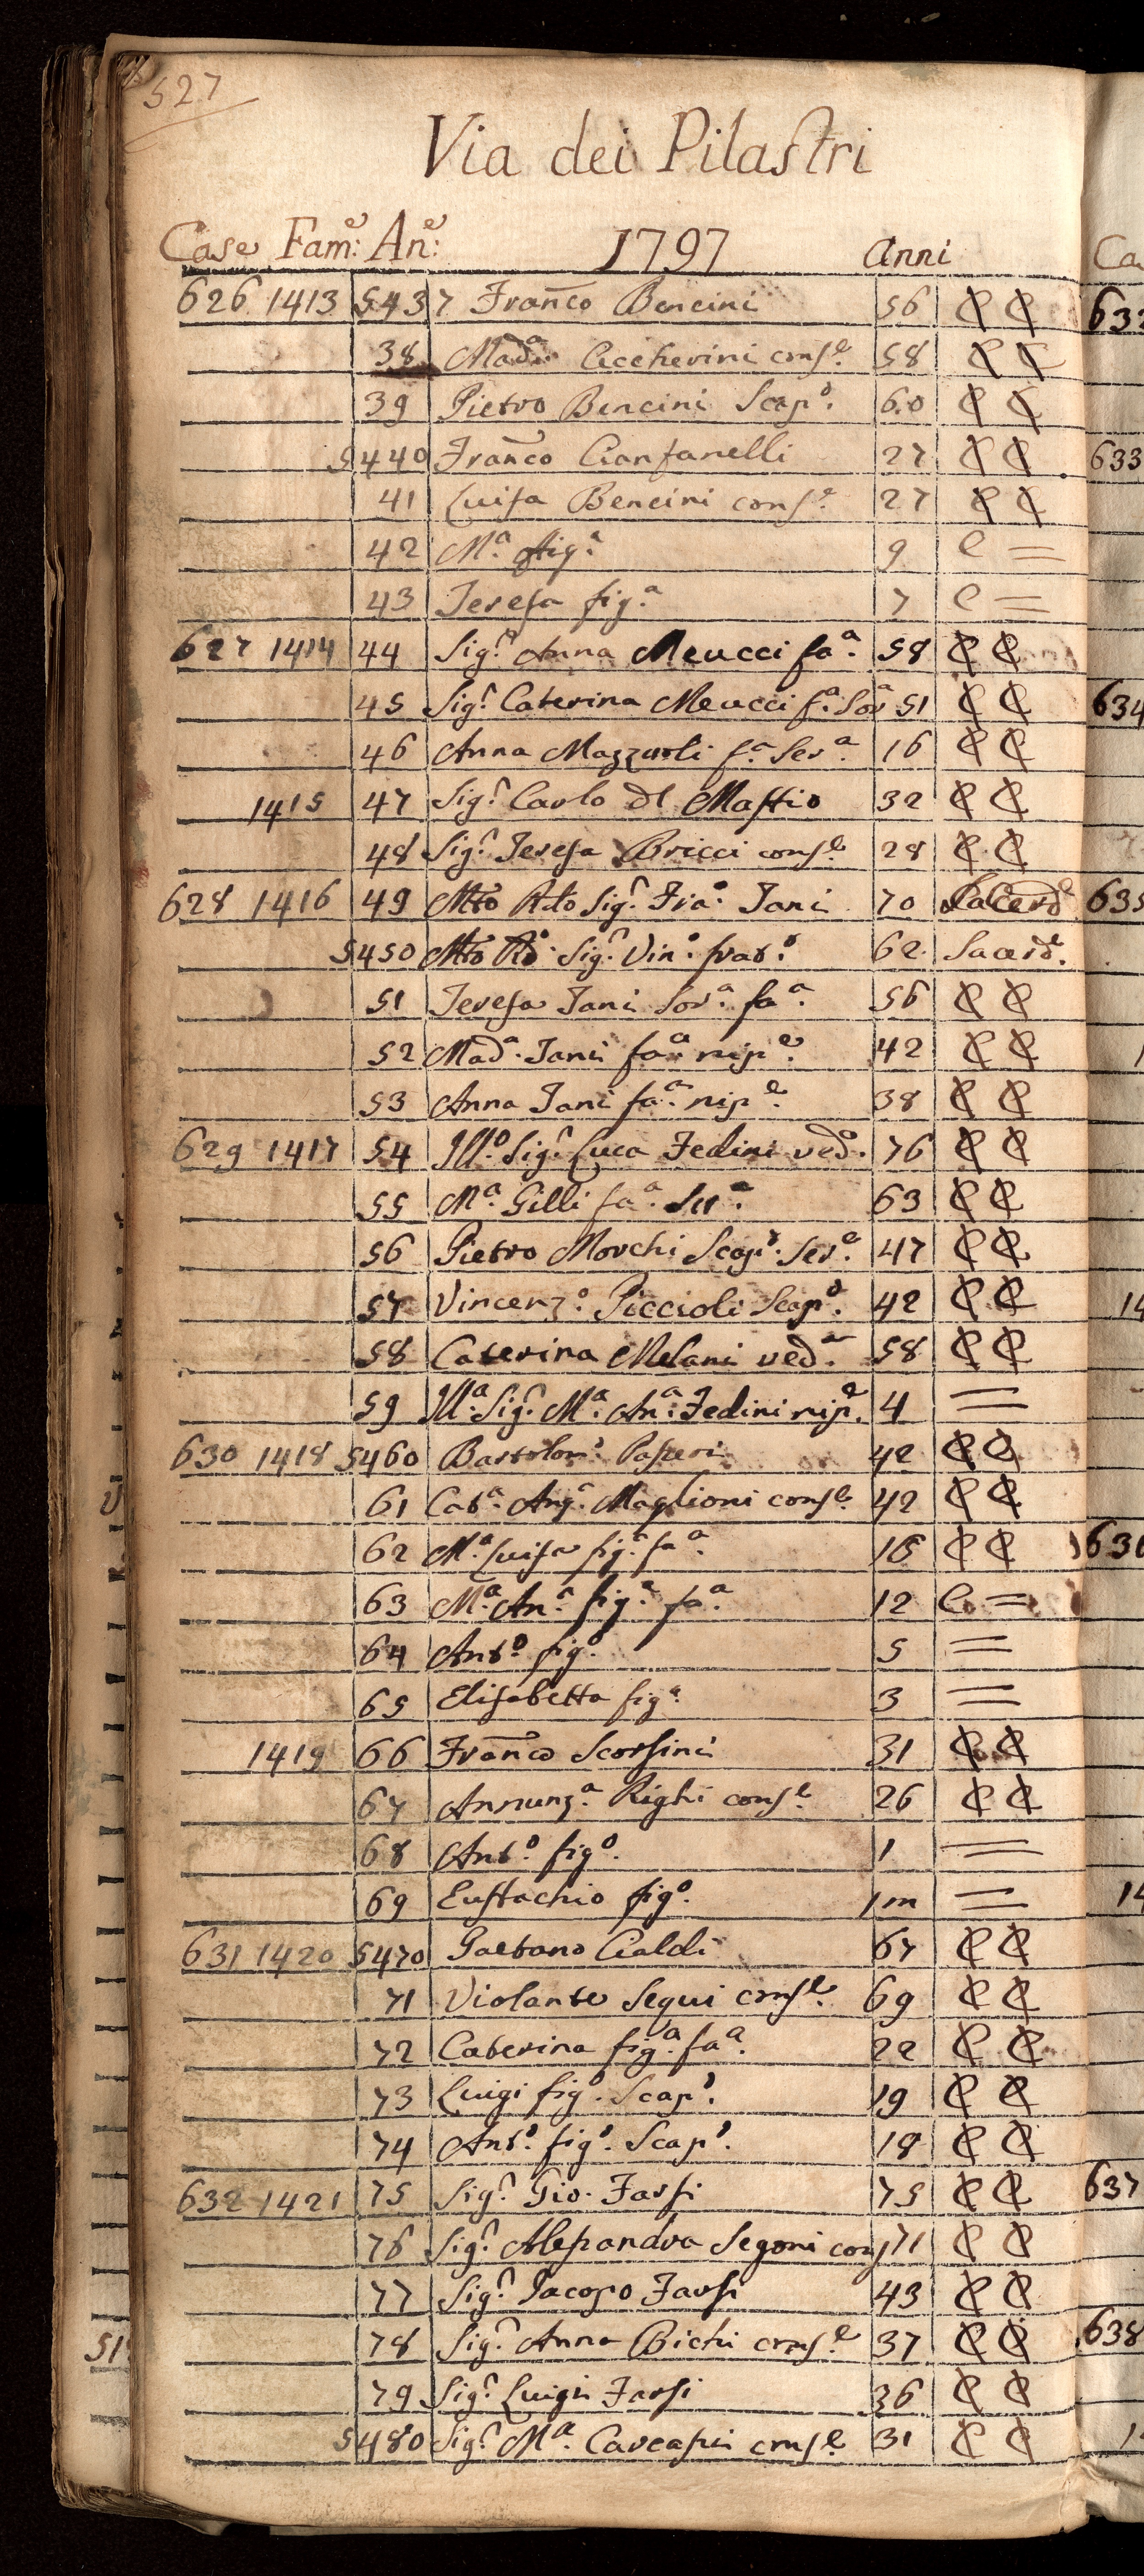 527
Via dei Pilastri
Case Fam:e An:e 1797 Anni
626 1413 5437 Franco Bencini 56 C C
38 Mad.a Ceccherini cons.e 58 C C
39 Pietro Bencini Scap.o 60 C C
5440 Franco Cianfanelli 27 C C
41 Luisa Bencini cons.e 27 C C
42 M.a fig.a 9 C =
43 Teresa fig.a 7 C =
627 1414 44 Sig.ra Anna Meucci fa.a 58 C C
45 Sig.ra Caterina Meucci f.a Sor.a 51 C C
46 Anna Mazzuoli f.a Ser.a 16 C C
1415 47 Sig.r Carlo del Mastio 32 C C
48 Sig.ra Teresa Bricci cons.e 28 C C
628 1416 49 Mto Rdo Sig.r Fra.o Tani 70 Sacerd.e
5450 Mto Rdo Sig.r Vin.o frat.o 62 Sacerd.
51 Teresa Tani Sor.a fa.a 56 C C
52 Mad.a Tani fa.a nip.e 42 C C
53 Anna Tani fa.a nip.e 38 C C
629 1417 54 Ill.o Sig.r Luca Fedini ved.o 76 C C
55 M.a Gilli fa.a Ser.a 63 C C
56 Pietro Morchi Scap.o Ser.e 47 C C
57 Vincenz.o Piccioli Scap.o 42 C C
58 Caterina Melani ved.a 58 C C
59 Ill.a Sig.ra M.a An.a Fedini nip.e 4 =
630 1418 5460 Bartolom.o Passeri 42 C C
61 Cat.a Ang.a Maglioni cons.e 42 C C
62 M.a Luisa fig.a fa.a 18 C C
63 M.a An.a fig.a fa.a 12 C =
64 Ant.o fig.o 5 =
65 Elisabetta fig.a 3 =
1419 66 Franco Scorsini 31 C C
67 Annunz.a Righi cons.e 26 C C
68 Ant.o fig.o 1 =
69 Eustachio fig.o 1m =
631 1420 5470 Gaetano Cialdi 67 C C
71 Violante Segui cons.e 69 C C
72 Caterina fig.a fa.a 22 C C
73 Luigi fig.o Scap.o 19 C C
74 Ant.o fig.o Scap.o 18 C C
632 1421 75 Sig.r Gio. Farsi 75 C C
76 Sig.ra Alessandra Segoni cons 71 C C
77 Sig.r Jacopo Farsi 43 C C
78 Sig.ra Anna Bichi cons.e 37 C C
79 Sig.r Luigi Farsi 36 C C
5480 Sig.ra M.a Carcassi cons.e 31 C C
Ca
633
634
635
636
637
638